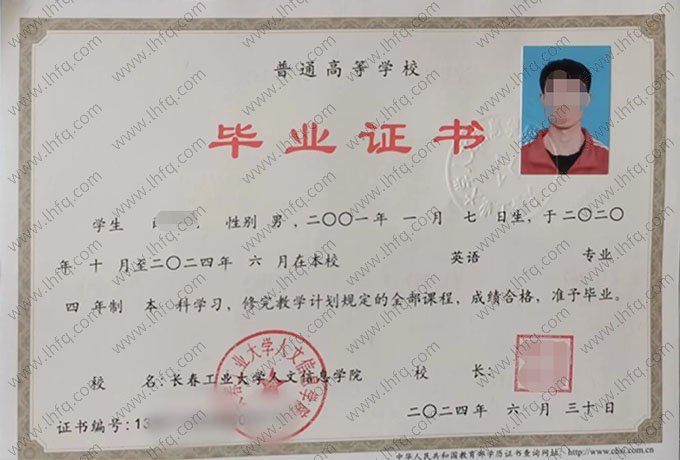 普通高等学校
毕业证书
学生 性别 男，二〇〇一年 一 月 七 日生，于二〇二〇
年 十 月至二〇二四年 六 月在本校 英语 专业
四 年制 本 科学习，修完教学计划规定的全部课程，成绩合格，准予毕业。
校 名：长春工业大学人文信息学院 校 长：
二〇二四年 六 月 三十日
证书编号：13
中华人民共和国教育部学历证书查询网址：http://www.chsi.com.cn
www.lhfq.com